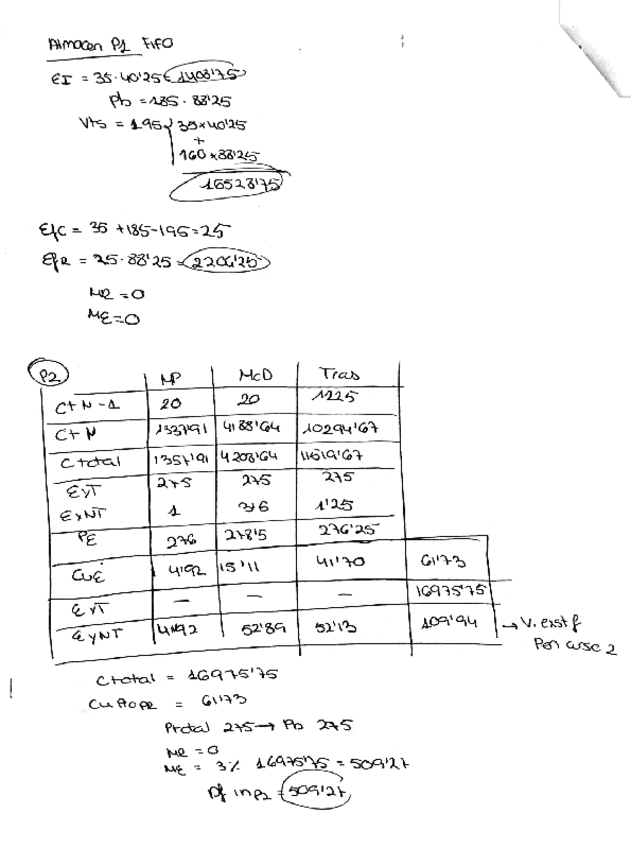 Almacen P1 FIFO
EI = 35·40'25 = 1408'75
Pb = 185·88'25
Vts = 195 35×40'25
+
160×88'25
16528'75
EfC = 35 + 185 - 195 = 25
EfR = 25·88'25 = 2206'25
MR = 0
ME = 0
P2 MP McD Tras
CtN-1 20 20 1225
CtN 1337'91 4188'64 10294'67
Ctotal 1357'91 4208'64 11519'67
ExT 275 275 275
ExNT 1 3'6 1'25
PE 276 278'5 276'25
CuE 4'92 15'11 41'70 61'73
ExT — — — 16975'75
ExNT 4'92 52'89 52'13 109'94 → V. exist f
Pen curso 2
Ctotal = 16975'75
Cu = 61'73
Prtotal 275 → Pb 275
MR = 0
ME = 3% 16975'75 = 509'27
Pf in P2 = 509'27